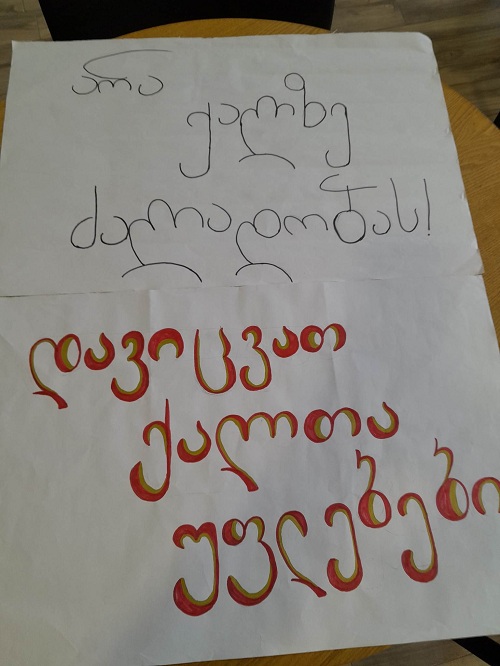 არა
ქალზე
ძალადობას!
დავიცვათ
ქალთა
უფლებები